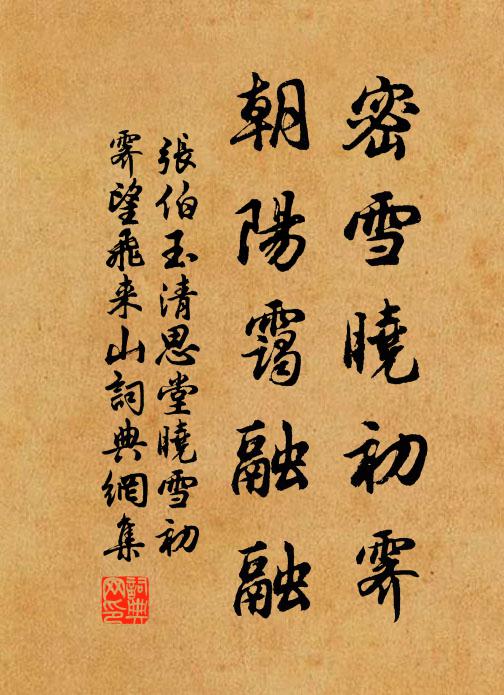 密雪曉初霽
朝陽靄融融
張伯玉清思堂曉雪初
霽望飛来山詞典網集
詞典網印